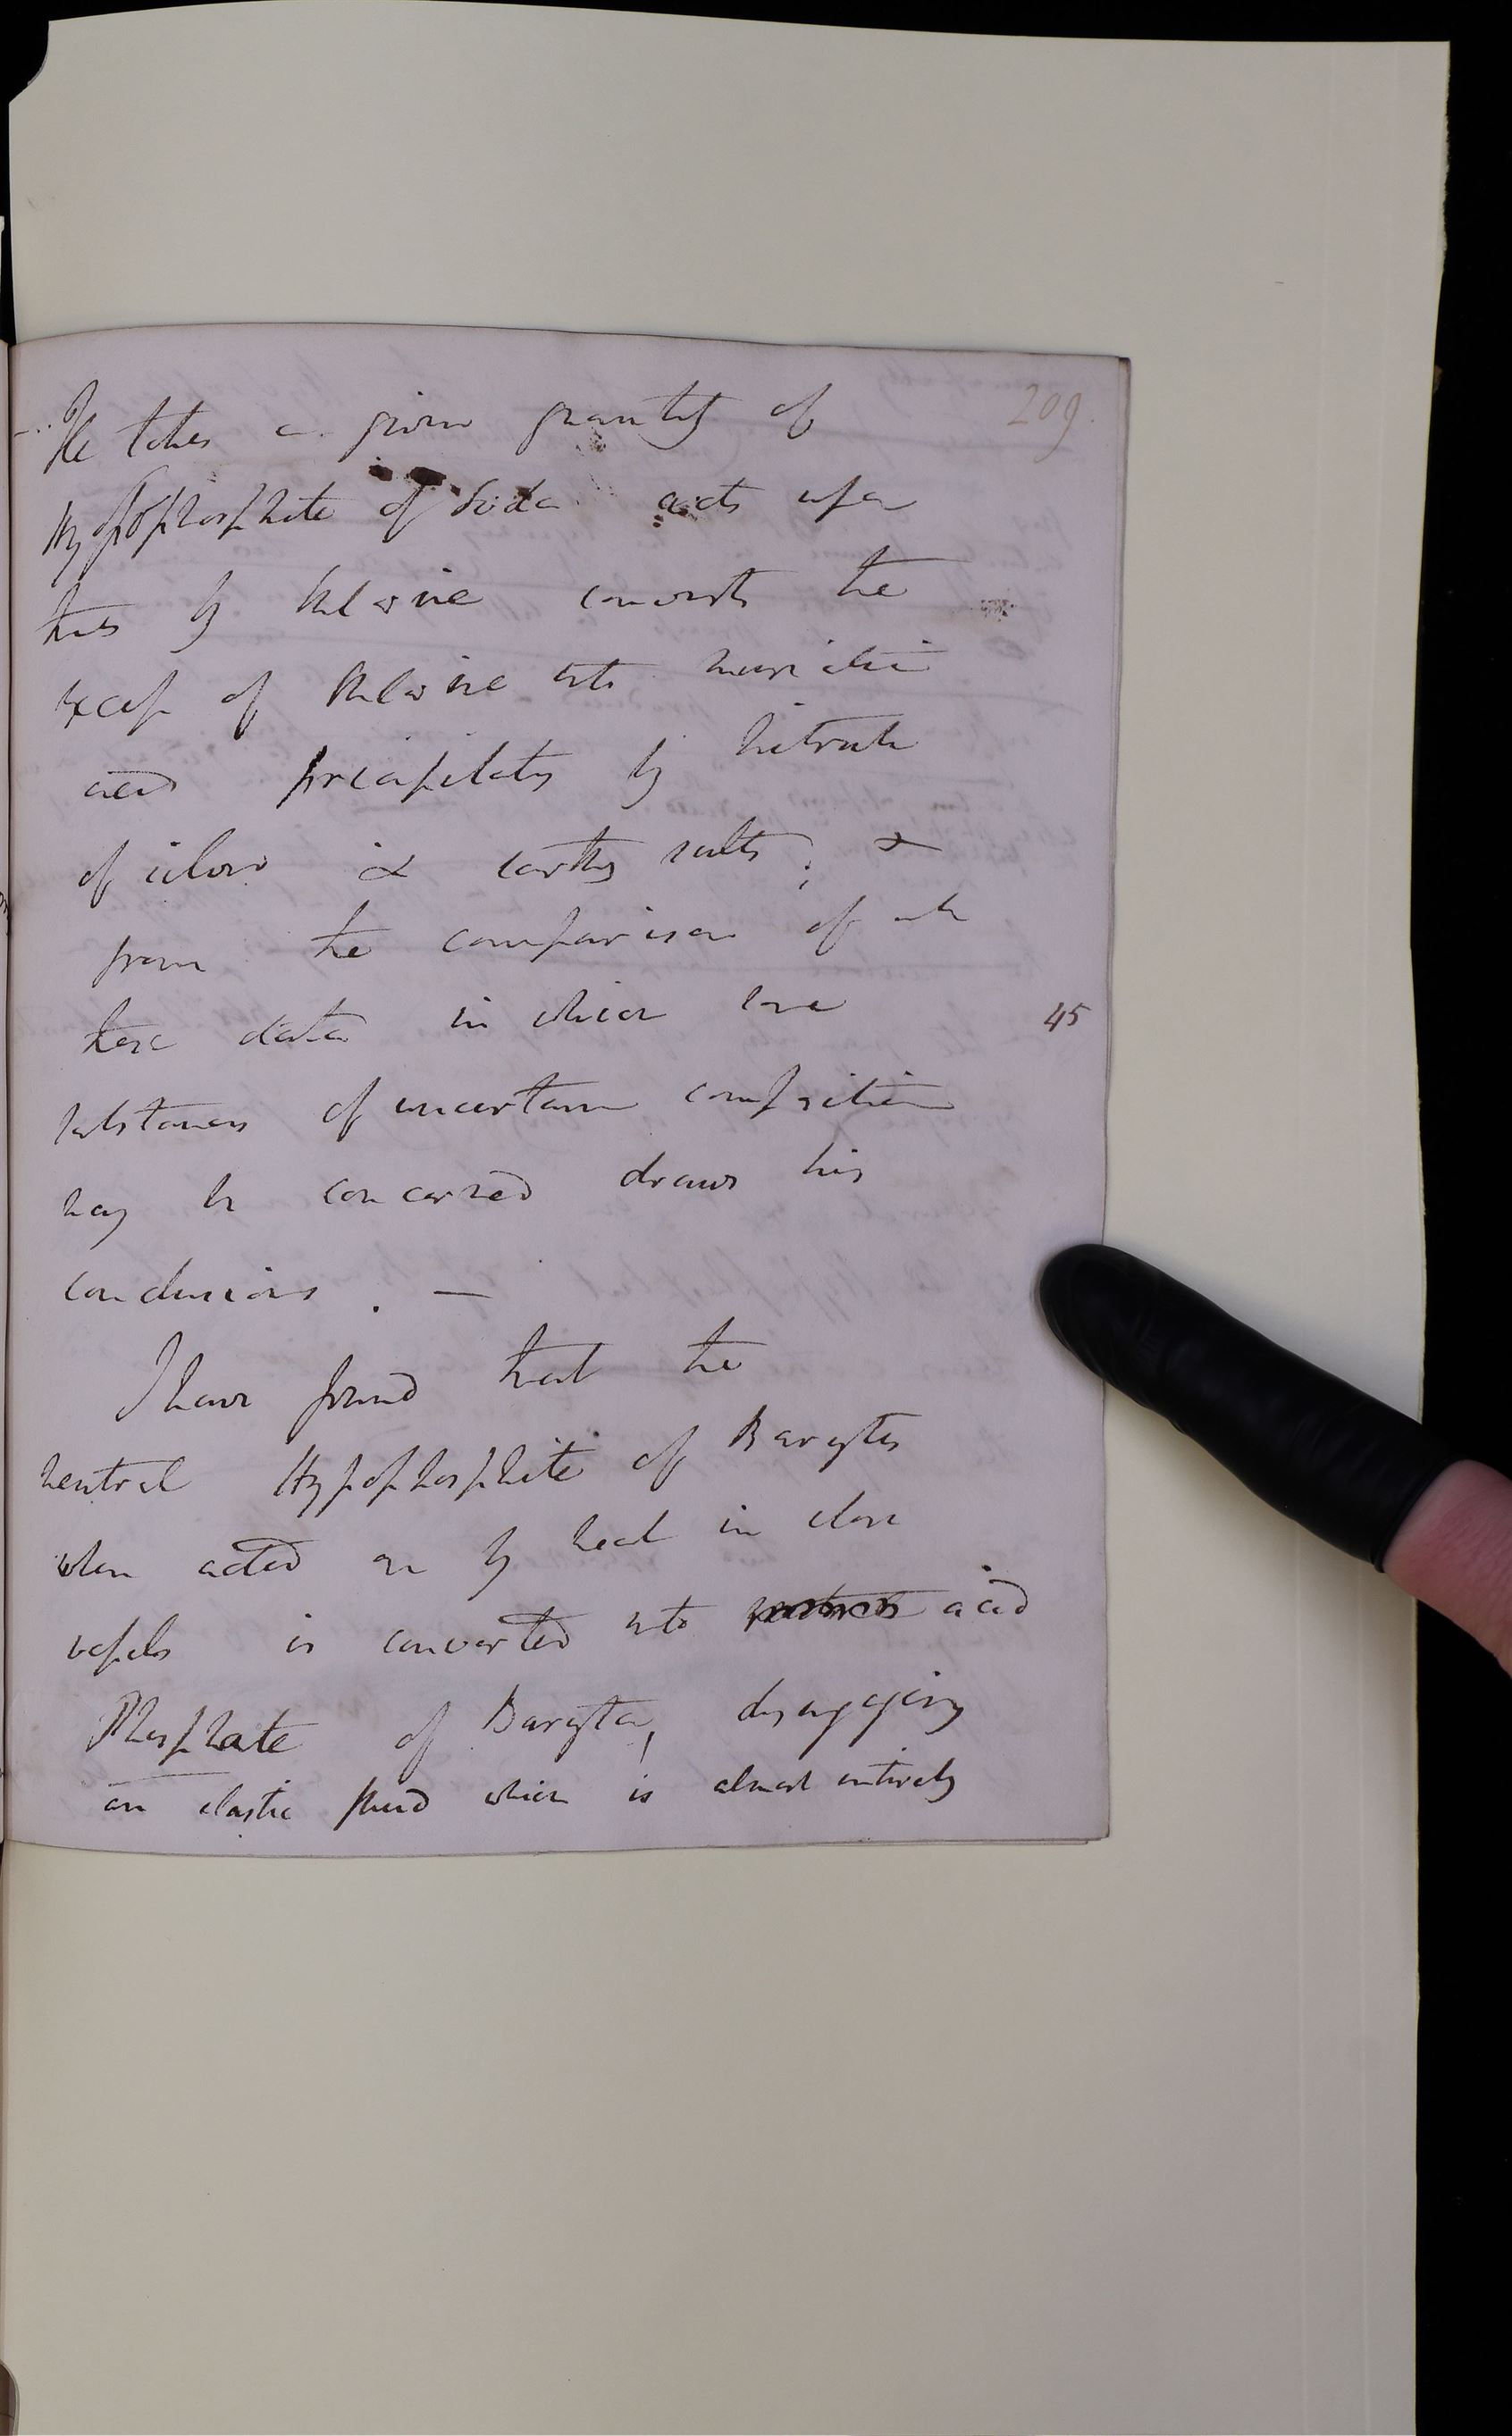 209.
He takes a given quantity of
Hypophosphite of Soda acts upon
this by chlorine converts the
excess of chlorine into muriatic
acid precipitates by nitrate
of silver & earthy salts; &
from the comparison of all
these data in which some
45
substances of uncertain composition
may be concerned draws his
conclusions. —
I have found that the
neutral Hypophosphite of Barytes
when acted on by heat in close
vessels is converted into acid
Phosphate of Baryta, disengaging
an elastic fluid which is almost entirely